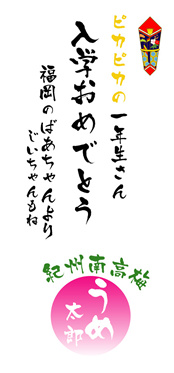 ピカピカの一年生さん
入学おめでとう
福岡のばあちゃんより
じいちゃんもね
紀州南高梅
うめ
太郎